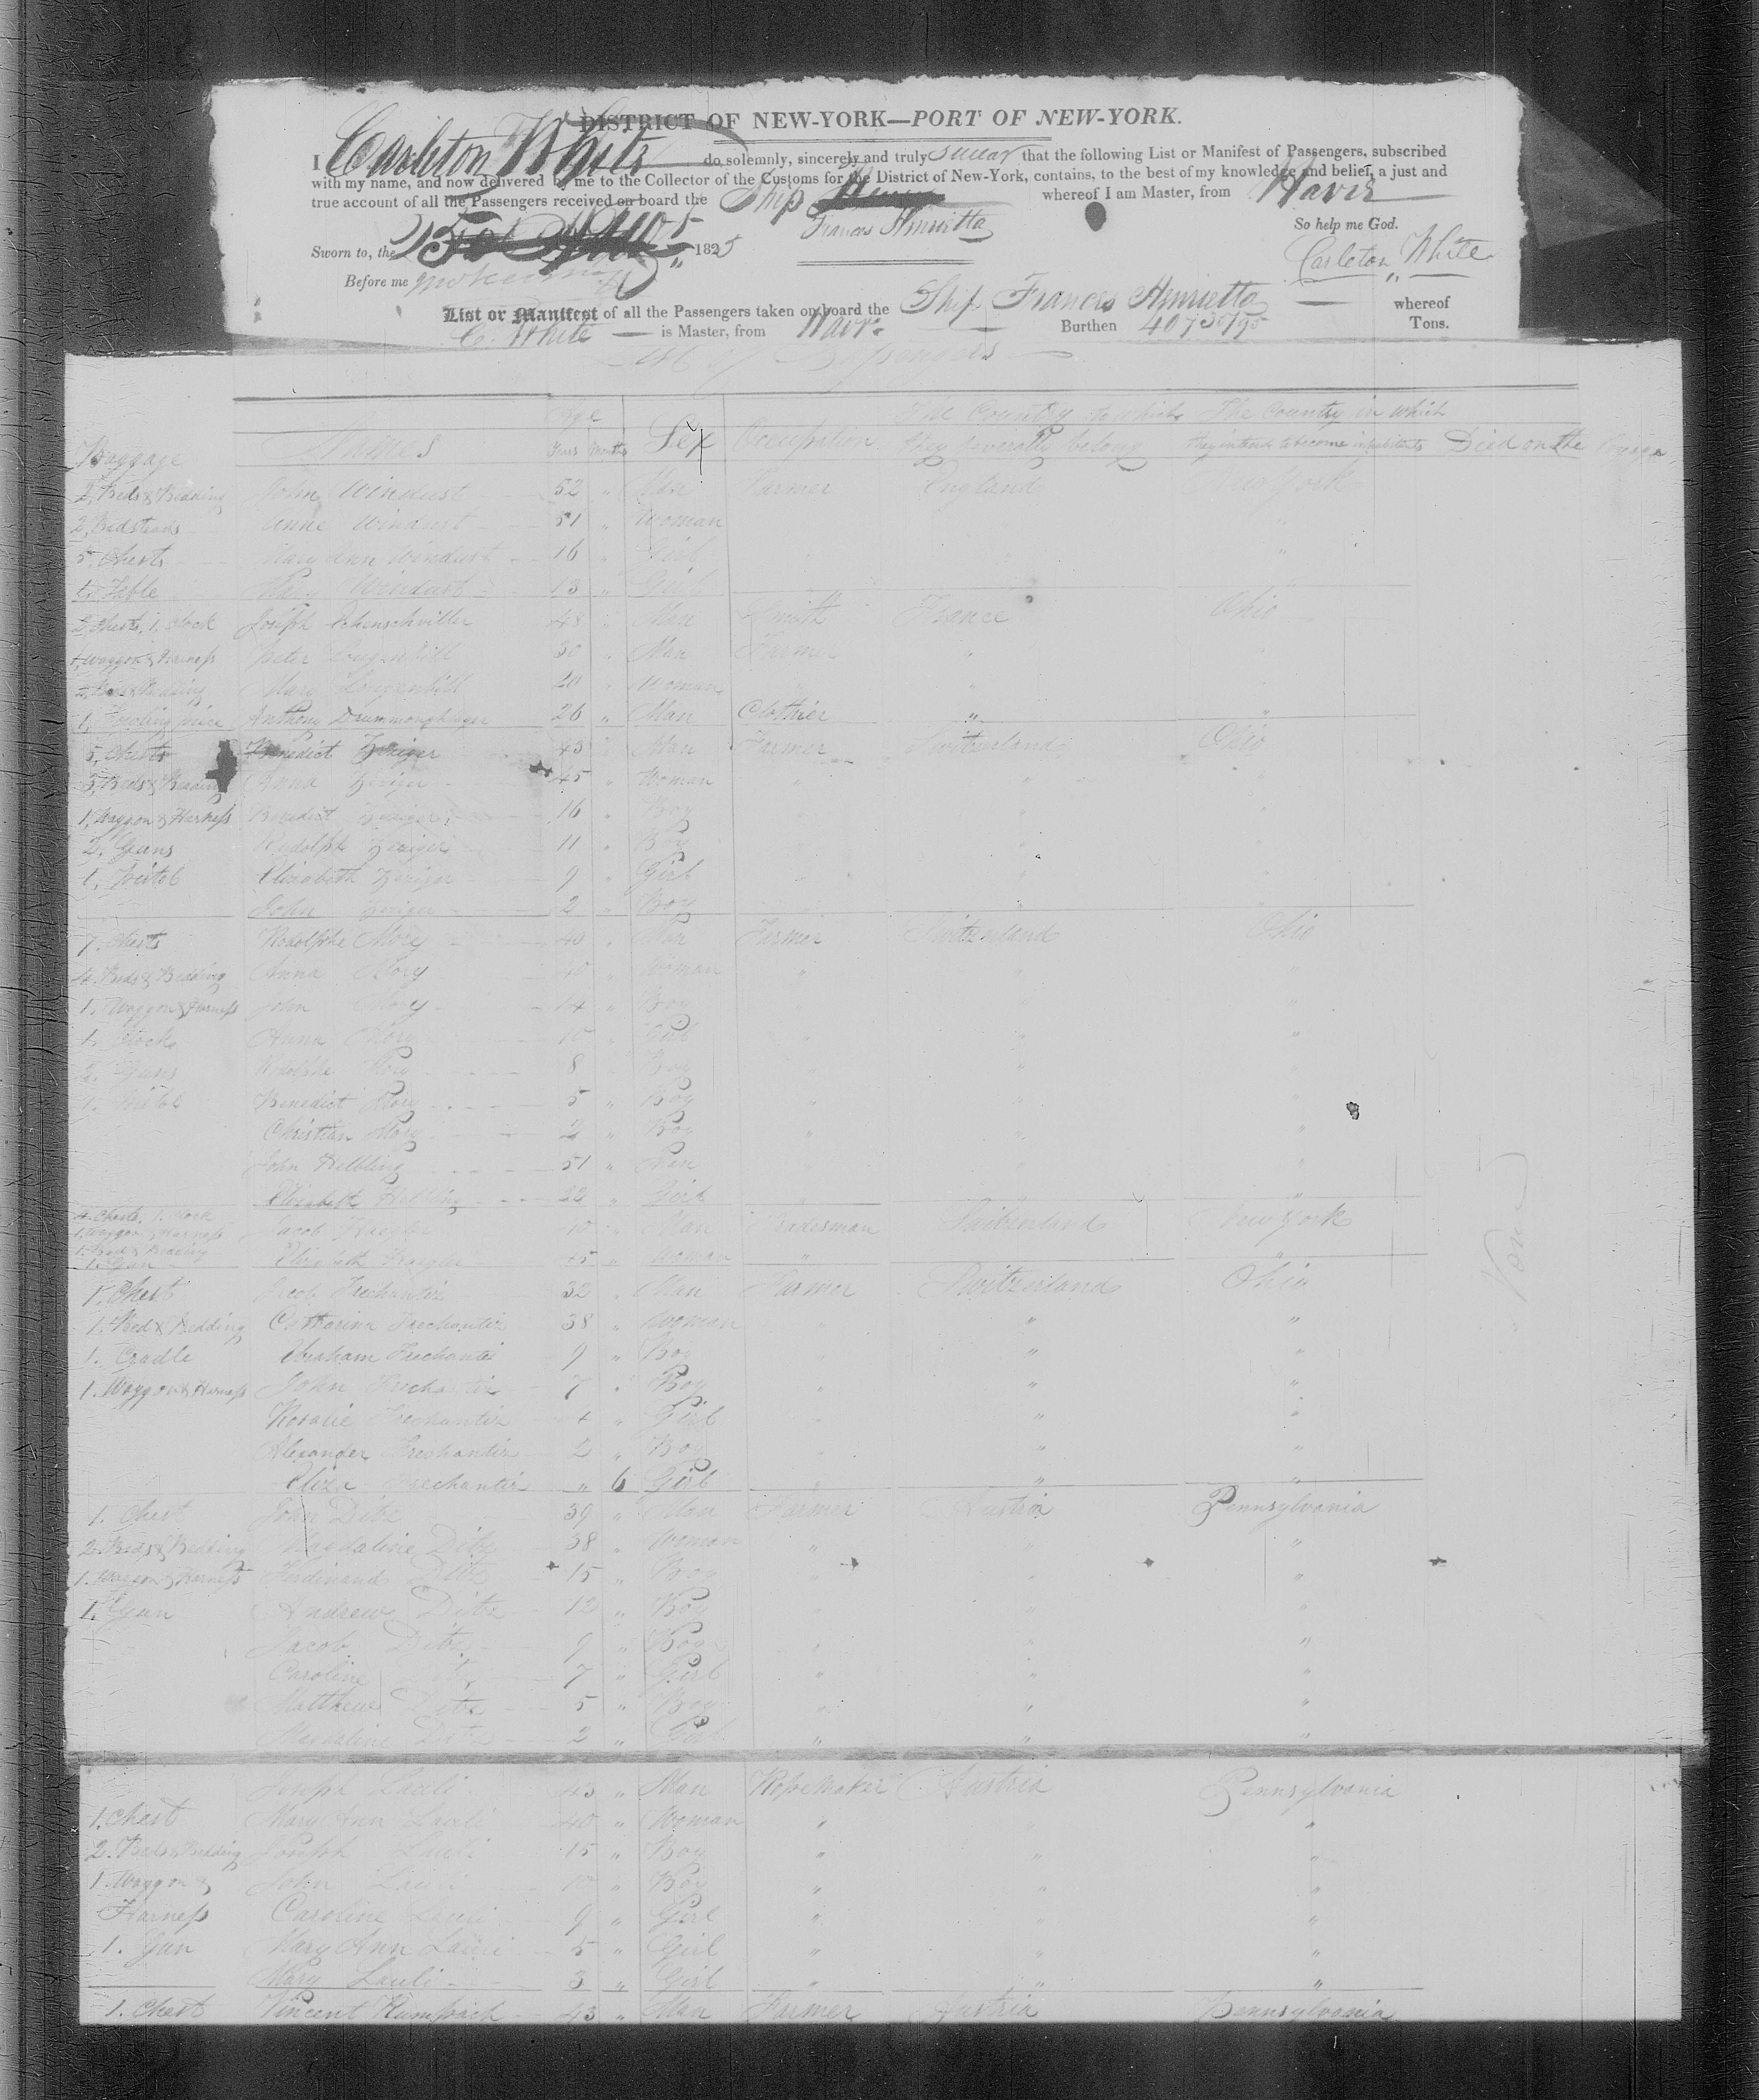 DISTRICT OF NEW-YORK—PORT OF NEW-YORK.
I Carleton White do solemnly, sincerely and truly swear that the following List or Manifest of Passengers, subscribed
with my name, and now delivered by me to the Collector of the Customs for the District of New-York, contains, to the best of my knowledge and belief, a just and
true account of all the Passengers received on board the Ship whereof I am Master, from Havre
Frances Henrietta So help me God.
Sworn to, the 1825 Carleton White
Before me
List or Manifest of all the Passengers taken on board the Ship Frances Henrietta whereof
C. White is Master, from Havre Burthen 407 30/95 Tons.
Age The Country to which The Country in which
Baggage Names Years Months Sex Occupation they severally belong they intend to become inhabitants Died on the Voyage
2, Beds & Bedding John Windust 52 " Man Farmer England New York
2, Bedsteads Anne Windust 51 " Woman "
5 Chests Mary Ann Windust 16 " Girl "
1, Table Mary Windust 13 " Girl
2, Chests, 1, Clock Joseph 48 " Man Smith France Ohio
1, Waggon & Harness Peter Lougenbill 30 " Man Farmer " "
Beds & Bedding Mary Lougenbill 20 " Woman "
1, Fowling piece Anthony 26 " Man Clothier " "
5, Chests Benedict 43 " Man Farmer Switzerland Ohio
3, Beds & Bedding Anna 45 " Woman "
1, Waggon & Harness Benedict 16 " Boy " "
2, Guns Rudolph 11 " Boy "
1, Pistol Elizabeth 9 " Girl "
John 2 " Boy " "
7. Chests Rodolphe Mory 40 " Man Farmer Switzerland Ohio
4. Beds & Bedding Anna Mory 40 " Woman " " "
1. Waggon & Harness John Mory 14 " Boy "
1. Clock Anna Mory 10 " Girl " " "
2. Guns Rodolphe Mory 8 " Boy "
1. Pistol Benedict Mory 5 " Boy "
Christian Mory 2 " Boy " "
John Helbling 51 " Man "
Elizabeth Helbling 22 " Girl " "
4. Chests, 1. Clock
1. Waggon & Harness Jacob 40 " Man Tradesman Switzerland New York
1. Bed & Bedding
1. Gun Elizabeth 45 " Woman " "
1. Chest Jacob Frechantiz 32 " Man Farmer Switzerland Ohio
1. Bed & Bedding Catharina Frechantiz 38 " Woman " "
1. Cradle Abraham Frechantiz 9 " Boy " "
1. Waggon & Harness John Frechantiz 7 " Boy " " "
Rosalie Frechantiz 4 " Girl " "
Alexander Frechantiz 2 " Boy " "
Eliza Frechantiz " 6 Girl " " "
1. Chest John Ditz 39 " Man Farmer Austria Pennsylvania
2. Beds & Bedding Magdaline Ditz 38 " Woman " " "
1. Waggon & Harness Ferdinand Ditz 15 " Boy " "
1. Gun Andrew Ditz 12 " Boy " "
Jacob Ditz 9 " Boy " " "
Caroline Ditz 7 " Girl " " "
Matthew Ditz 5 " Boy " " "
Magdaline Ditz 2 " Girl " " "
Joseph Lauli 43 " Man Rope Maker Austria Pennsylvania
1. Chest Mary Ann Lauli 40 " Woman " " "
2. Beds & Bedding Joseph Lauli 15 " Boy " " "
1. Waggon & John Lauli 10 " Boy " " "
Harness Caroline Lauli 9 " Girl " " "
1. Gun Mary Ann Lauli 5 " Girl " " "
Mary Lauli 3 " Girl " " "
1. Chest Vincent 43 " Man Farmer Austria Pennsylvania
None